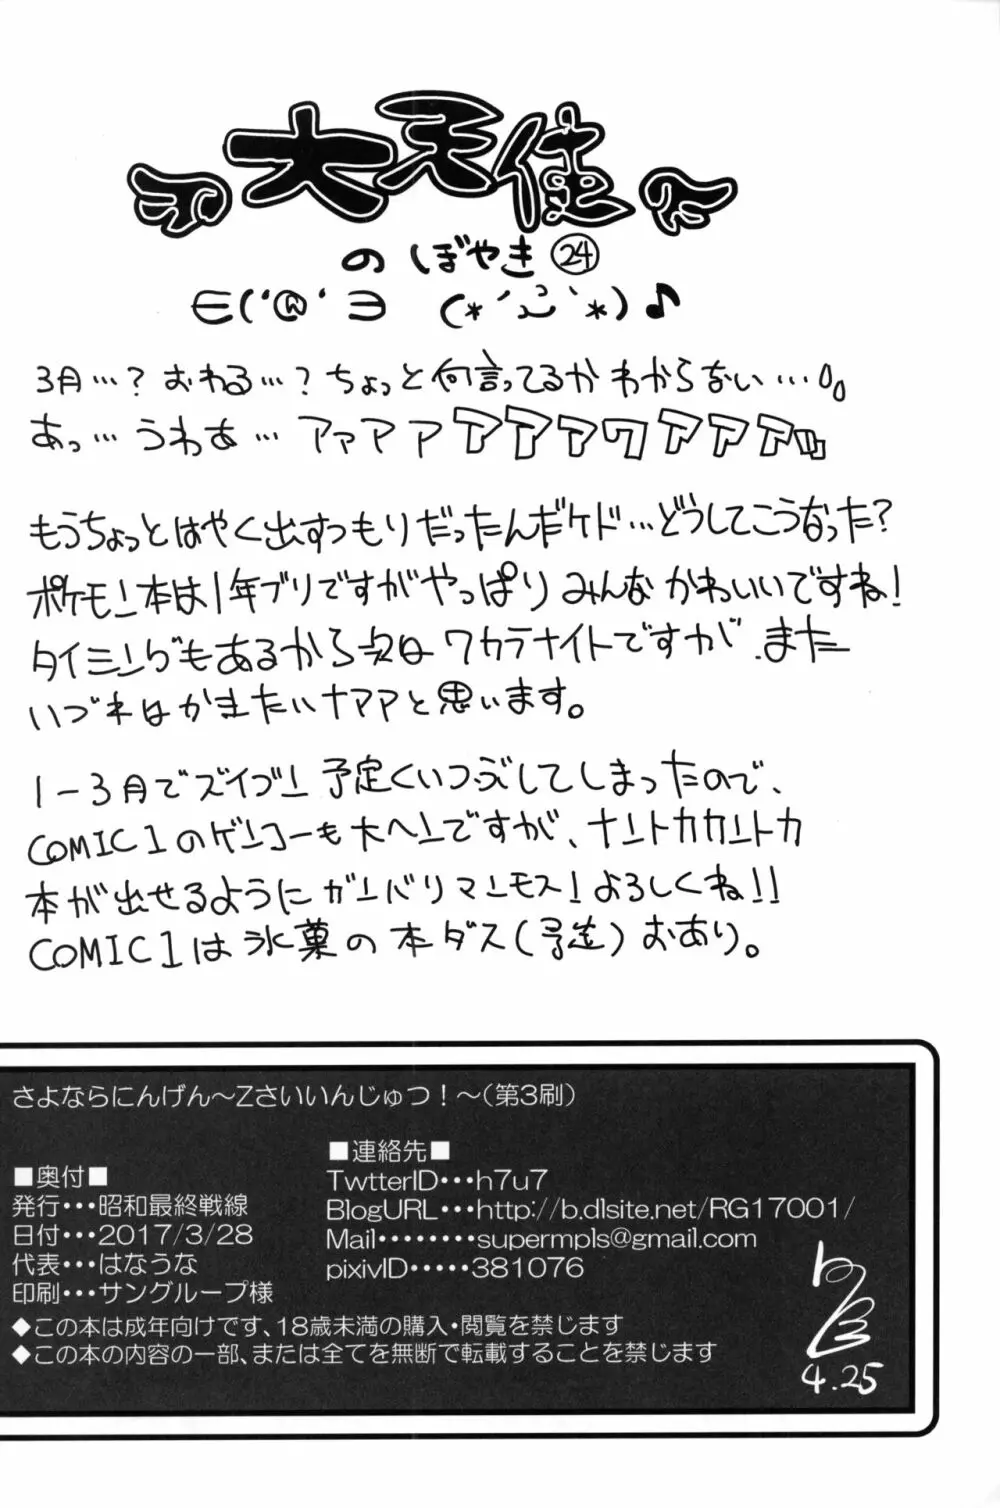 大天使
のぼやき㉔
∈('@'∋ (*´ `*)♪
3月…?おわる…?ちょっと何言ってるかわからない…
あっ…うわあ…アァアアアアァワアアアッ
もうちょっとはやく出すつもりだったんだケド…どうしてこうなった?
ポケモン本は1年ブリですがやっぱりみんなかわいいですね!
タイミングもあるから次はワカラナイトですが、また
いづれはかきたいナァァと思います。
1-3月でズイブン予定くいつぶしてしまったので、
COMIC1のゲンコーも大ヘンですが、ナントカカントカ
本が出せるようにガンバリマンモス!よろしくね!!
COMIC1は氷菓の本ダス(予定)おあり。
さよならにんげん〜Zさいいんじゅつ!〜(第3刷)
■奥付■
発行・・・昭和最終戦線
日付・・・2017/3/28
代表・・・はなうな
印刷・・・サングループ様
■連絡先■
TwtterID・・・h7u7
BlogURL・・・http://b.dlsite.net/RG17001/
Mail・・・・・・・・supermpls@gmail.com
pixivID・・・・・381076
◆この本は成年向けです、18歳未満の購入・閲覧を禁じます
◆この本の内容の一部、または全てを無断で転載することを禁じます
4.25